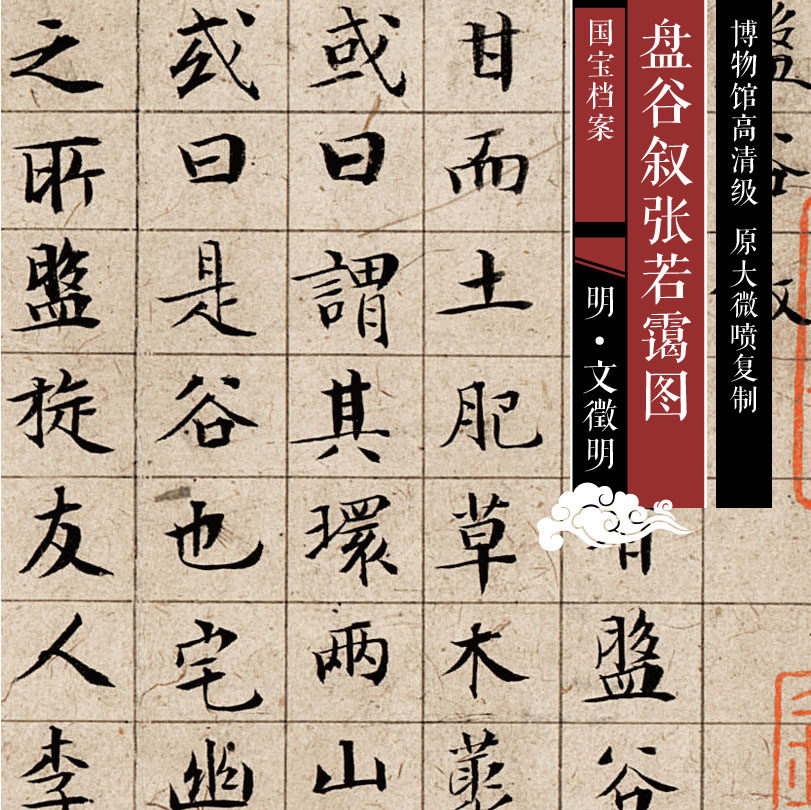 博物馆高清级 原大微喷复制
盘谷叙张若霭图
国宝档案
明·文徵明
盤谷
甘而土肥草木藂
或曰謂其環兩山
或曰是谷也宅幽
之所盤旋友人李